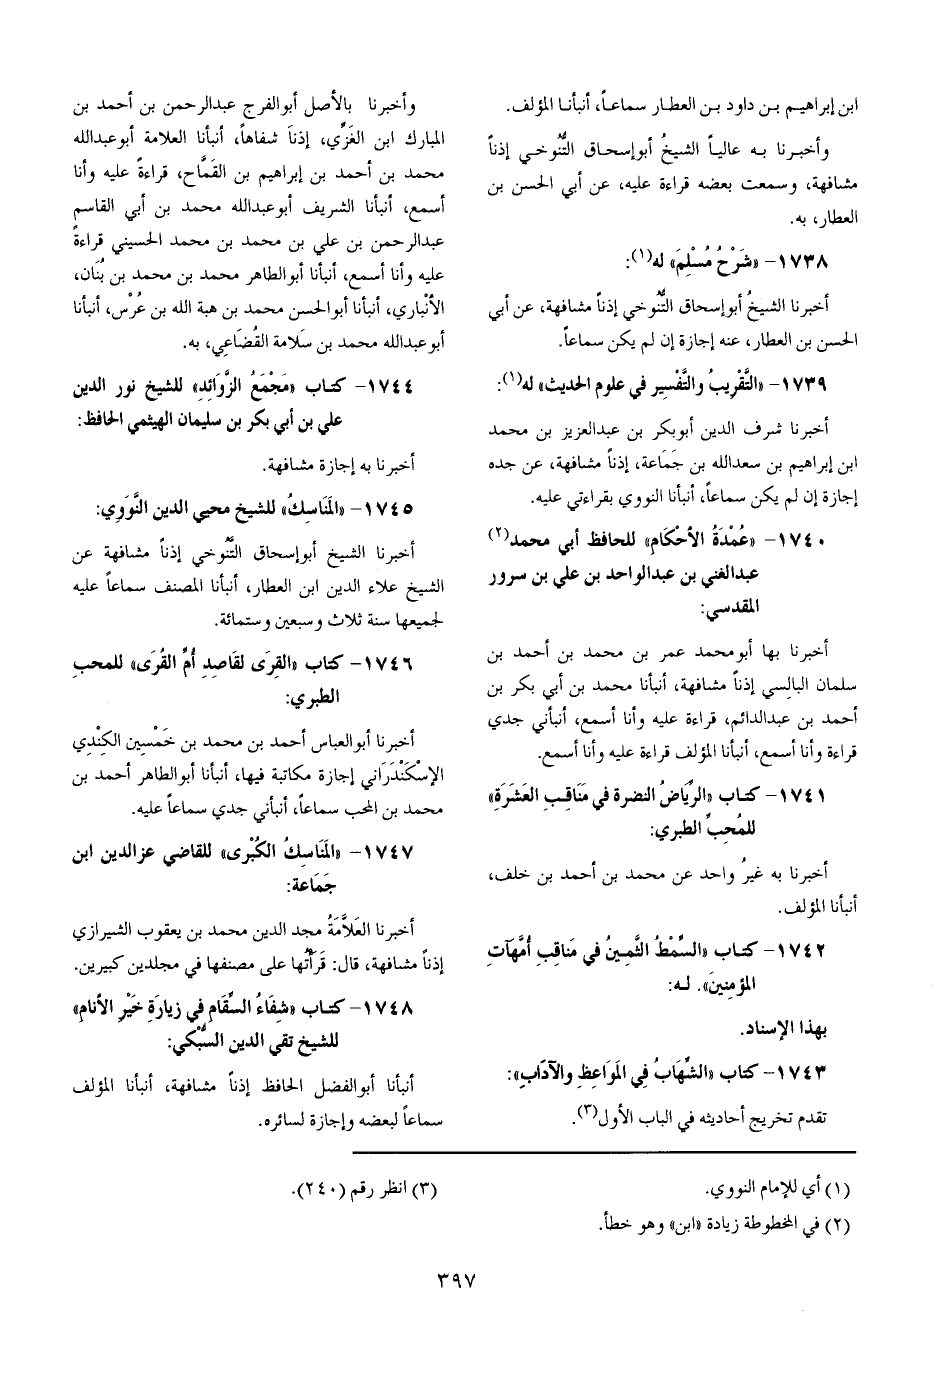 ابن إبراهيم بن داود بن العطار سماعاً، أنبأنا المؤلف.
وأخبرنا به عالياً الشيخُ أبوإسحاق التَّنُوخي إذناً
مشافهة، وسمعت بعضه قراءة عليه، عن أبي الحسن بن
العطار، به.
١٧٣٨- «شَرْحُ مُسْلِمَ» له(١):
أخبرنا الشيخُ أبوإسحاق التَّنُوخي إذناً مشافهة، عن أبي
الحسن بن العطار، عنه إجازة إن لم يكن سماعاً.
١٧٣٩- «التَّقْريبُ والتَّفْسير في علوم الحديث» له(١):
أخبرنا شرف الدين أبوبكر بن عبدالعزيز بن محمد
ابن إبراهيم بن سعدالله بن جَمَاعة، إذناً مشافهة، عن جده
إجازة إن لم يكن سماعاً، أنبأنا النووي بقراءتي عليه.
١٧٤٠- «عُمْدَةُ الأحْكَام» للحافظ أبي محمد(٢)
عبدالغني بن عبدالواحد بن علي بن سرور
المقدسي:
أخبرنا بها أبومحمد عمر بن محمد بن أحمد بن
سلمان البالسي إذناً مشافهة، أنبأنا محمد بن أبي بكر بن
أحمد بن عبدالدائم، قراءة عليه وأنا أسمع، أنبأني جدي
قراءة وأنا أسمع، أنبأنا المؤلف قراءة عليه وأنا أسمع.
١٧٤١- كتاب «الرِّيَاضُ النضرة في مَنَاقِبِ العَشَرَةِ»
للمُحبِّ الطبري:
أخبرنا به غيرُ واحد عن محمد بن أحمد بن خلف،
أنبأنا المؤلف.
١٧٤٢- كتاب «السِّمْطُ الثَّمِينُ في مَناقِبِ أمَّهآتِ
المؤمنينَ». لـه:
بهذا الإسناد.
١٧٤٣- كتاب «الشِّهَابُ فِي المَوَاعِظِ والآدَابِ»:
تقدم تخريج أحاديثه في الباب الأول(٣).
وأخبرنا بالأصل أبوالفرج عبدالرحمن بن أحمد بن
المبارك ابن الغَزِّي، إذناً شفاهاً، أنبأنا العلامة أبوعبدالله
محمد بن أحمد بن إبراهيم بن القَمَّاح، قراءةً عليه وأنا
أسمع، أنبأنا الشريف أبوعبدالله محمد بن أبي القاسم
عبدالرحمن بن علي بن محمد بن محمد الحسيني قراءةً
عليه وأنا أسمع، أنبأنا أبوالطاهر محمد بن محمد بن بُنَان،
الأنْباري، أنبأنا أبوالحسن محمد بن هبة الله بن عُرْس، أنبأنا
أبوعبدالله محمد بن سَلامة القُضَاعي، به.
١٧٤٤- كتاب «مَجْمَعُ الزَّوَائِدِ» للشيخ نور الدين
علي بن أبي بكر بن سليمان الهيثمي الحافظ:
أخبرنا به إجازة مشافهة.
١٧٤٥- «المَنَاسِكُ» للشيخ محيي الدين النَّوَوِي:
أخبرنا الشيخ أبوإسحاق التَّنُوخي إذناً مشافهة عن
الشيخ علاء الدين ابن العطار، أنبأنا المصنف سماعاً عليه
لجميعها سنة ثلاث وسبعين وستمائة.
١٧٤٦- كتاب «القِرَى لقَاصِدِ أُمِّ القُرَى» للمحبِ
الطبري:
أخبرنا أبوالعباس أحمد بن محمد بن خَمْسين الكِنْدِي
الإسْكَنْدَرَاني إجازة مكاتبة فيها، أنبأنا أبوالطاهر أحمد بن
محمد بن المحب سماعاً، أنبأني جدي سماعاً عليه.
١٧٤٧- «المَنَاسِكُ الكُبْرى» للقاضي عزالدين ابن
جَمَاعة:
أخبرنا العَلاَّمَةُ مجد الدين محمد بن يعقوب الشيرازي
إذناً مشافهة، قال: قَرَأتُها على مصنفها في مجلدين كبيرين.
١٧٤٨- كتاب «شِفَاءُ السِّقَامِ في زيارَةِ خَيْرِ الأنام»
للشيخ تقي الدين السُّبْكي:
أنبأنا أبوالفضل الحافظ إذناً مشافهة، أنبأنا المؤلف
سماعاً لبعضه وإجازة لسائره.
(١) أي للإمام النووي.
(٢) في المخطوطة زيادة «ابن» وهو خطأ.
(٣) انظر رقم (٢٤٠).
٣٩٧